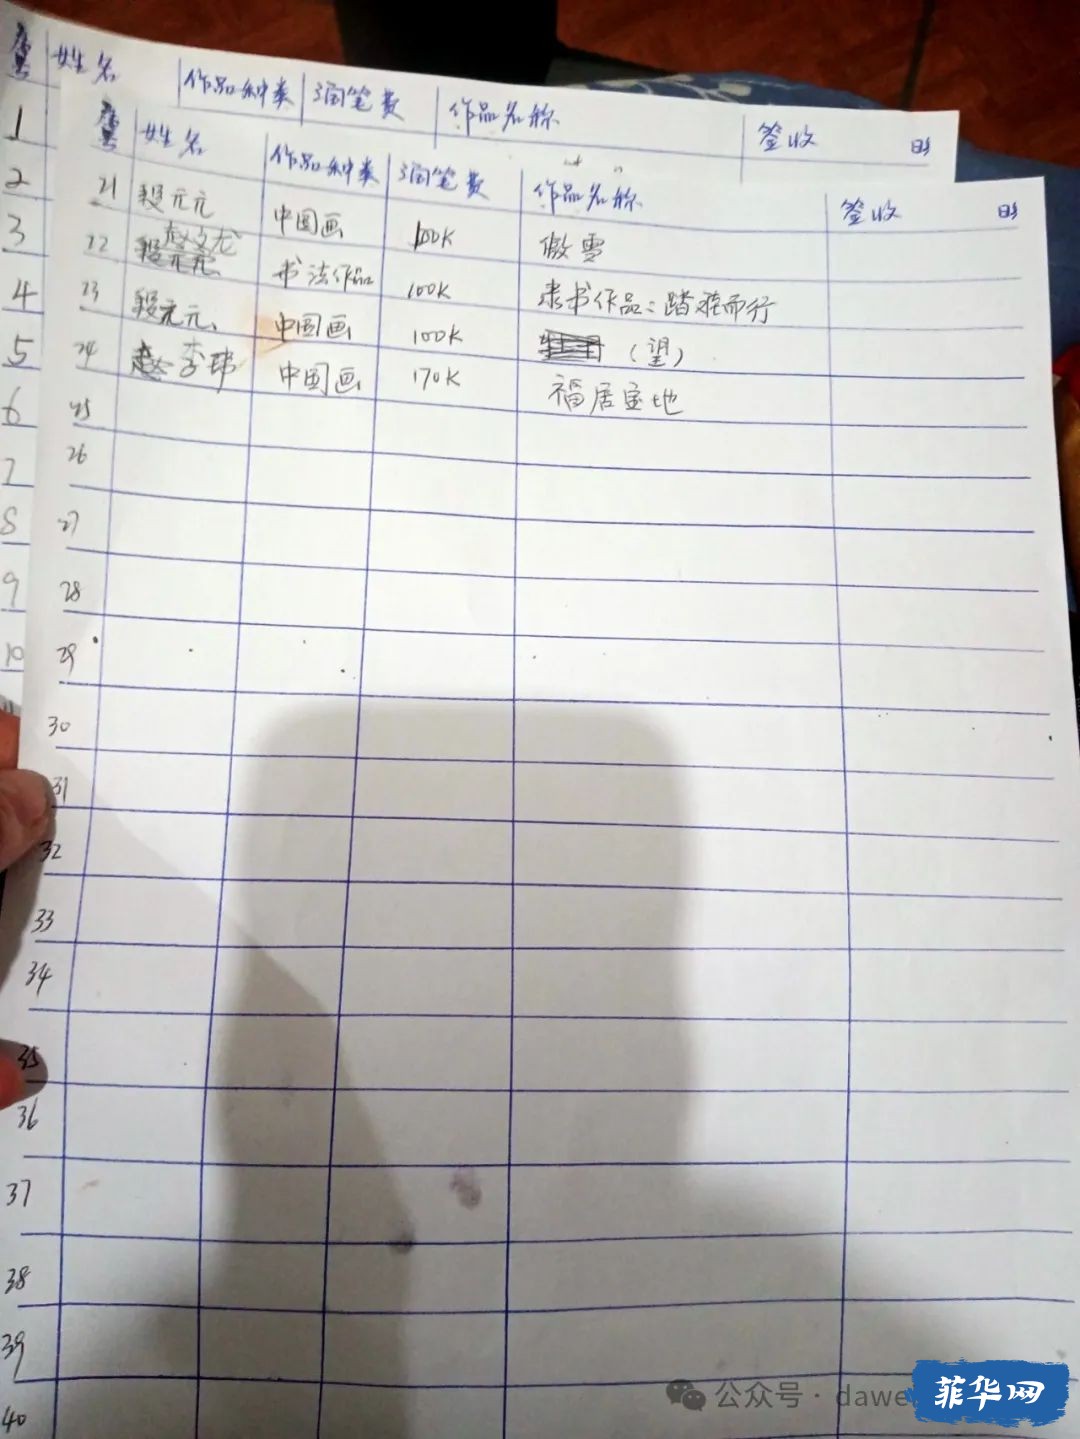 姓名 作品种类 润笔费 作品名称 签收
1
2
3
4
5
6
7
8
9
10
姓名 作品种类 润笔费 作品名称 签收
21 段元元 中国画 100K 傲雪
22 赵文龙 书法作品 100K 隶书作品：踏雅而行
23 段元元 中国画 100K （望）
24 李玮 中国画 170K 福居宝地
25
26
27
28
29
30
31
32
33
34
35
36
37
38
39
40
公众号 · dawe
菲华网